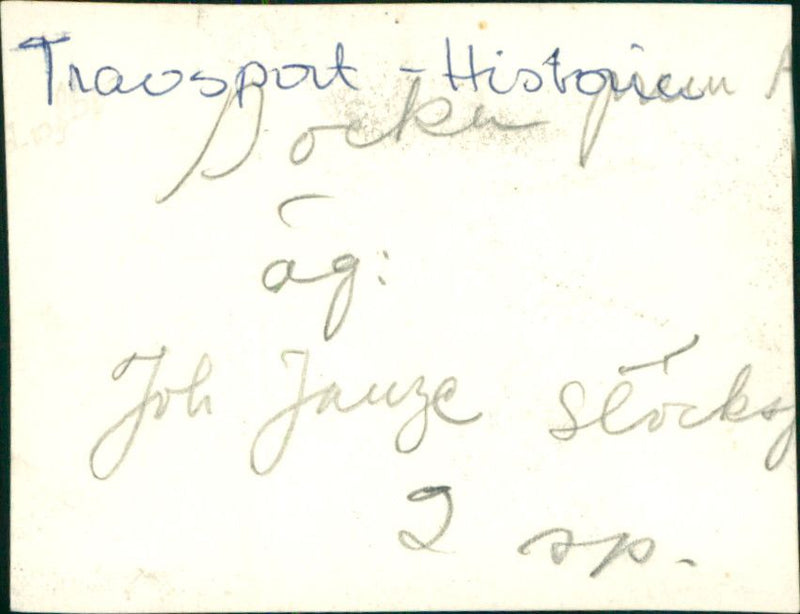 Transport - Historien
Docken
äg:
Joh Janze Slöcks
2 sp.